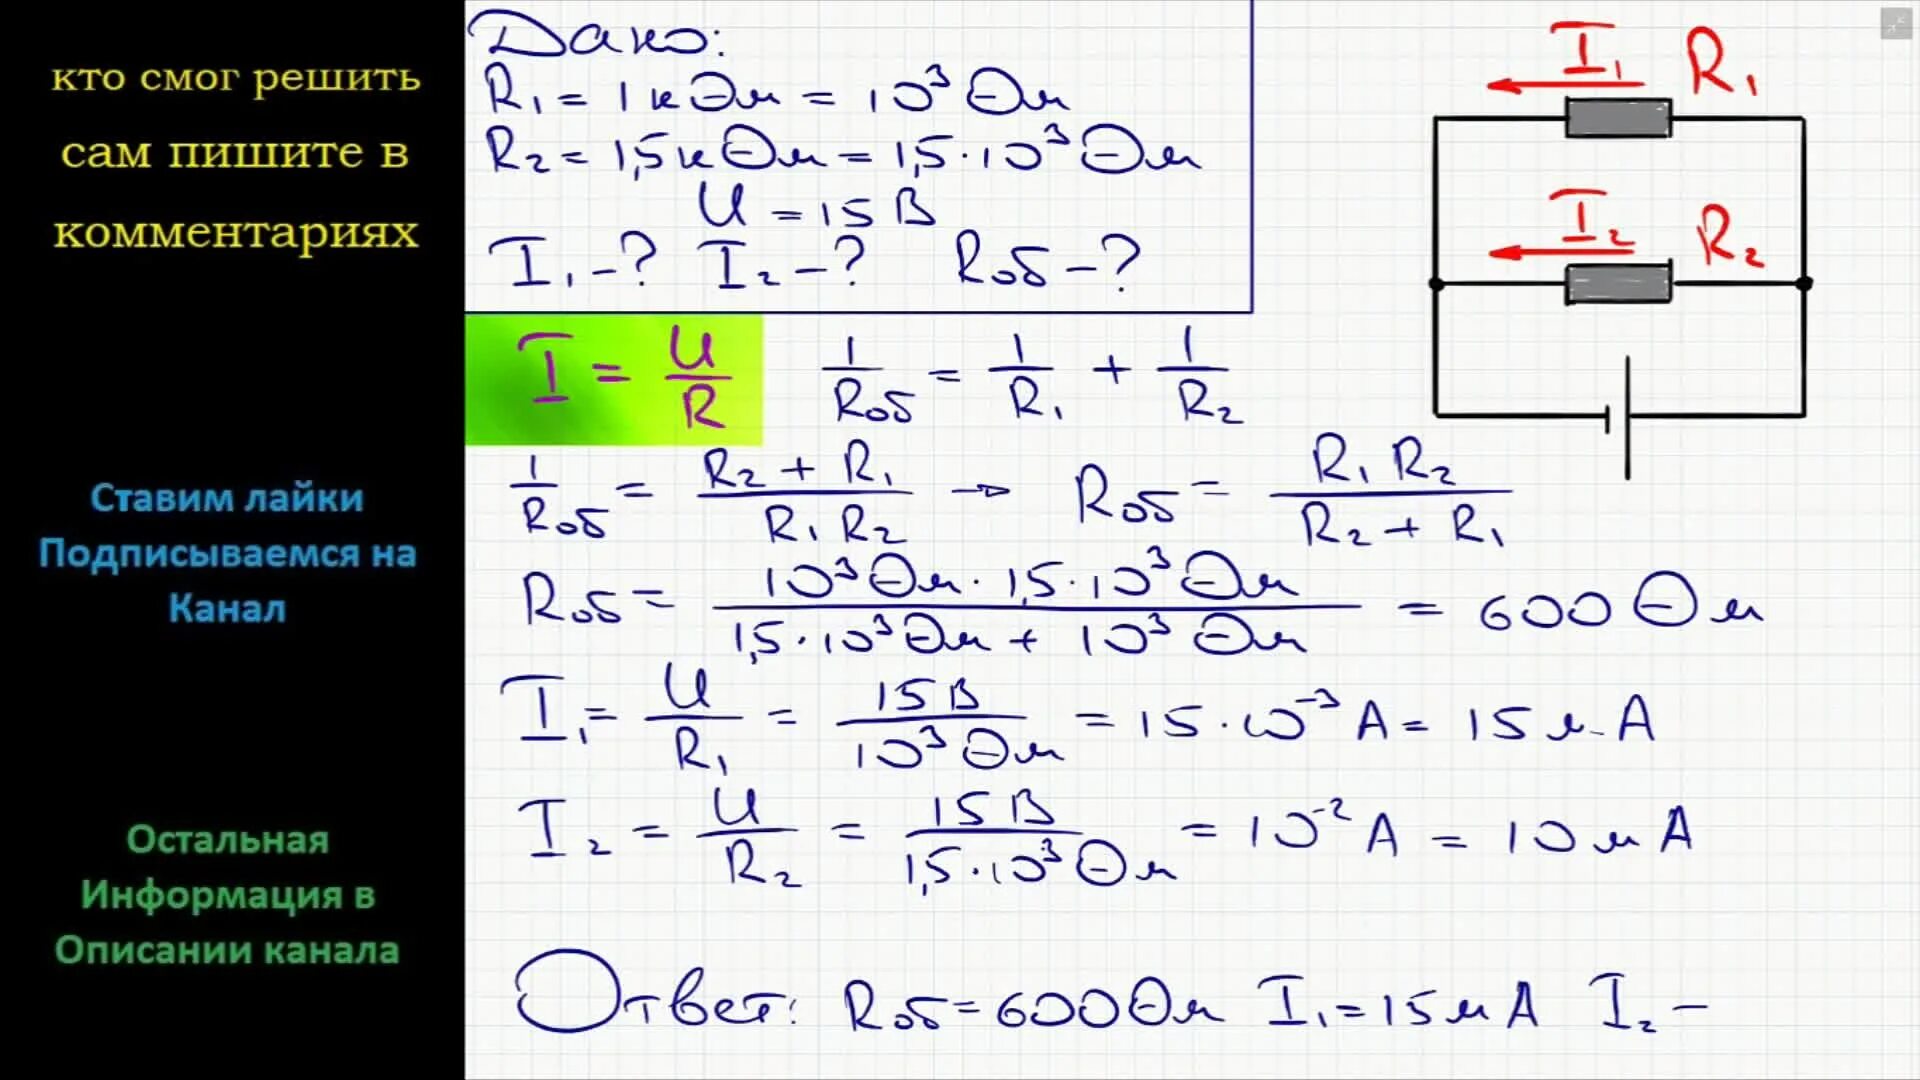 кто смог решить
сам пишите в
комментариях
Ставим лайки
Подписываемся на
Канал
Остальная
Информация в
Описании канала
Дано:
R₁ = 1 кОм = 10³ Ом
R₂ = 1,5 кОм = 1,5 · 10³ Ом
U = 15 В
I₁ - ? I₂ - ? Rоб - ?
I₁ R₁
I₂ R₂
I = U/R 1/Rоб = 1/R₁ + 1/R₂
1/Rоб = (R₂ + R₁)/(R₁ R₂) → Rоб = (R₁ R₂)/(R₂ + R₁)
Rоб = (10³ Ом · 1,5 · 10³ Ом)/(1,5 · 10³ Ом + 10³ Ом) = 600 Ом
I₁ = U/R₁ = 15 В/10³ Ом = 15 · 10⁻³ А = 15 мА
I₂ = U/R₂ = 15 В/1,5 · 10³ Ом = 10⁻² А = 10 мА
Ответ: Rоб = 600 Ом I₁ = 15 мА I₂ –